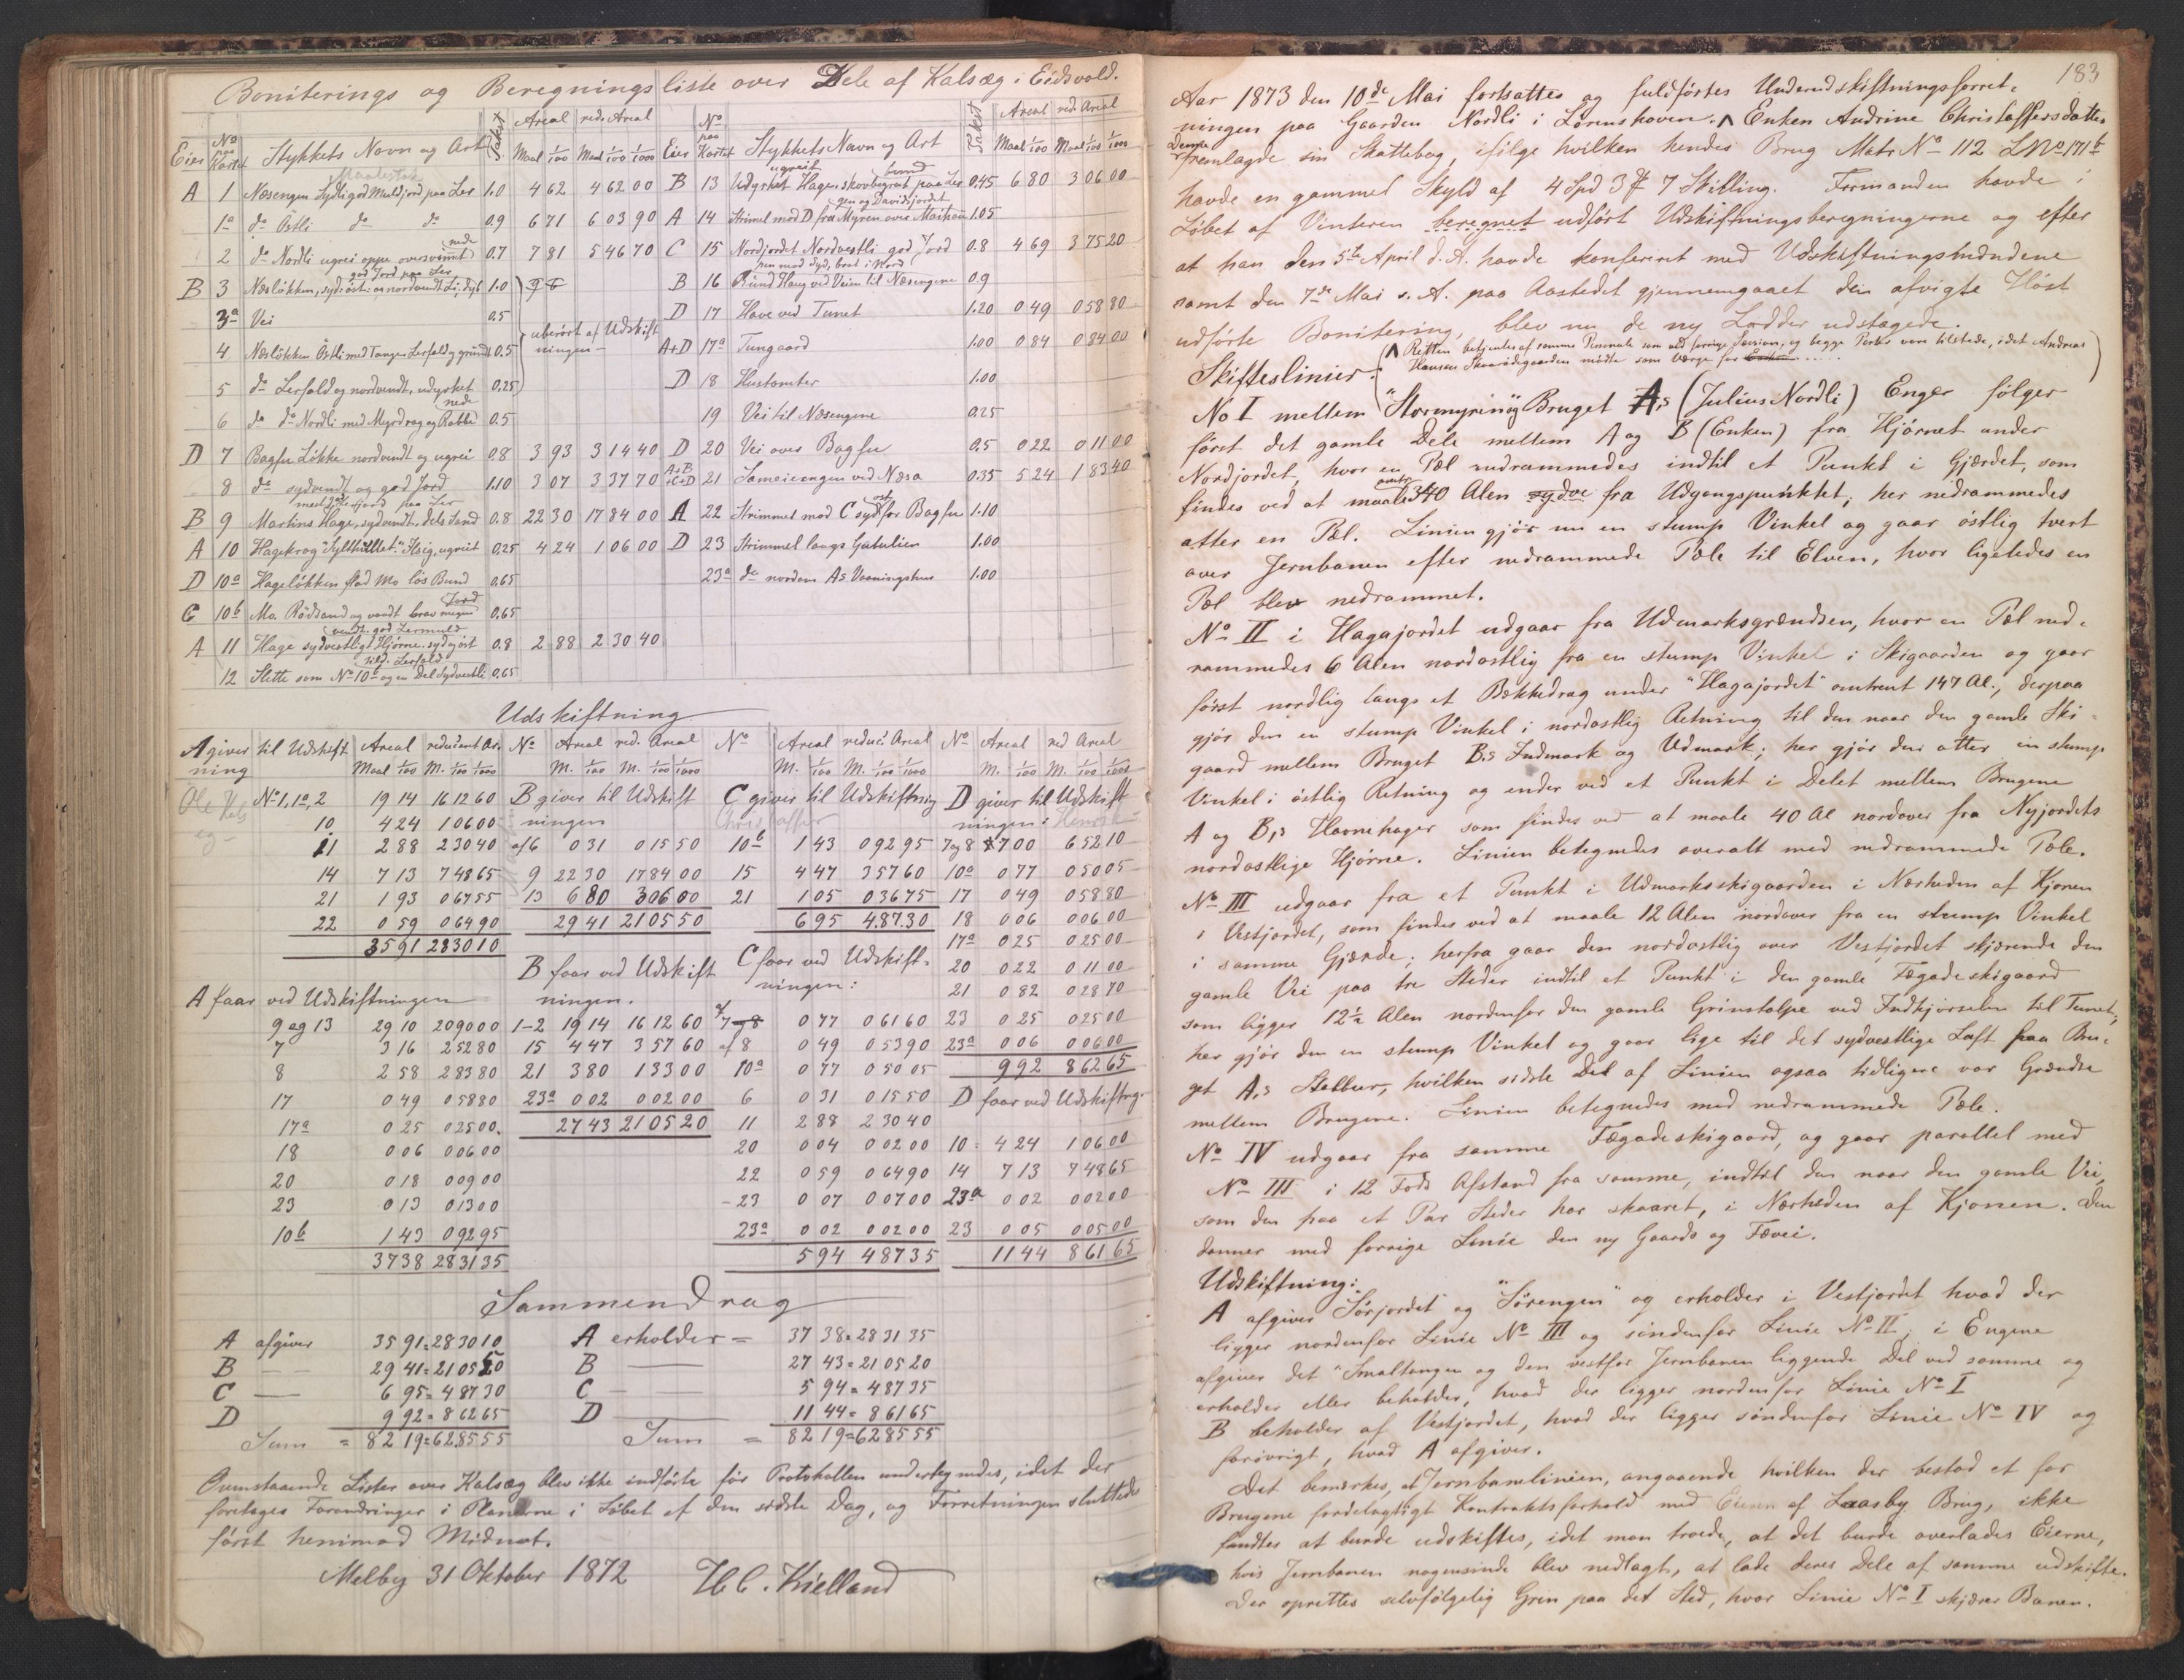 Boniterings og Beregningsliste over Dele af Kalsæg i Eidsvold.
Eier No paa Kartet Stykkets Navn og Art Takst Areal Maal 1/100 red. Areal Maal 1/100 1/1000
A 1 Næsengen Sydli god Muldjord paa Ler 1.0 4 62 4 62 00
1a do Østli do do 0.9 6 71 6 03 90
2 do Nordli ugrei oppe oversvømt nede 0.7 7 81 5 46 70
B 3 Næsløkken, syd og øst: og nordvendt Li, dyb god Jord paa Ler 1.0
3a Vei 0.5
uberørt af Udskiftningen
4 Næsløkken Østli med Tange Lerfald og grund 0.5
5 do Lerfald og nordvendt, udyrket 0.25
6 do do Nordli med Myrdrag og Rabbe nede 0.5
D 7 Bagfu Løkke nordvendt og ugrei 0.8 3 93 3 14 40
8 do sydvendt og god Jord 1.10 3 07 3 37 70
B 9 Martins Hage, sydvendt, dels Sand med god jord paa Ler 0.8 22 30 17 84 00
A 10 Hagekrog "Sylthullet" Hsig, ugreit 0.25 4 24 1 06 00
D 10a Hageløkken flad Mo løs Bund 0.65
C 10b Mo. Rødsand og vandt brav megen Jord 0.65
A 11 Hage sydvestligt Hjørne. syd og øst vendt. god Lermuld 0.8 2 88 2 30 40
12 Slette som No 10b og en Del Sydvestli tild. Lerfald 0.65
Eier No paa Kartet Stykkets Navn og Art Takst Areal Maal 1/100 red Areal Maal 1/100 1/1000
B 13 Udyrket Hage, skovbegroet paa Ler ugreit bund 0.45 6 80 3 06 00
A 14 Strimel mod D fra Myren over Marken gen og Davidsjordet 1.05
C 15 Nordjordet Nordvestli god Jord 0.8 4 69 3 75 20
B 16 Rund Haug ved Veien til Næsengene pen mod Syd, brat i Nord 0.9
D 17 Have ved Tunet 1.20 0 49 0 58 80
A+D 17a Tungaard 1.00 0 84 0 84 00
D 18 Hustomter 1.00
19 Vei til Næsengene 0.25
D 20 Vei over Bagfu 0.5 0 22 0 11 00
A+B+C+D 21 Sameieengen ved Næsa 0.35 5 24 1 83 40
A 22 Strimmel mod C syd øst for Bagfu 1.10
D 23 Strimmel langs Gatulien 1.00
23a do nordom A's Vaaningshus 1.00
Udskiftning
A giver til Udskiftning Areal Maal 1/100 reduceret Ar. M. 1/100 1/1000
No 1, 1a, 2 19 14 16 12 60
10 4 24 1 06 00
11 2 88 2 30 40
14 7 13 7 48 65
21 1 93 0 67 55
22 0 59 0 64 90
35 91 28 30 10
A faar ved Udskiftningen
9 og 13 29 10 20 90 00
7 3 16 2 52 80
8 2 58 2 83 80
17 0 49 0 58 80
17a 0 25 0 25 00
18 0 06 0 06 00
20 0 18 0 09 00
23 0 13 0 13 00
10b 1 43 0 92 95
37 38 28 31 35
No Areal M. 1/100 red. Areal M. 1/100 1/1000
B giver til Udskiftningen
af 6 0 31 0 15 50
9 22 30 17 84 00
13 6 80 3 06 00
29 41 21 05 50
B faar ved Udskiftningen.
1-2 19 14 16 12 60
15 4 47 3 57 60
21 3 80 1 33 00
23a 0 02 0 02 00
27 43 21 05 20
No Areal M. 1/100 reduc. Areal M. 1/100 1/1000
C giver til Udskiftning
10b 1 43 0 92 95
15 4 47 3 57 60
21 1 05 0 36 75
6 95 4.87.30
C faar ved Udskiftningen:
af 7 og 8 0 77 0 61 60
af 8 0 49 0 53 90
10a 0 77 0 50 05
6 0 31 0 15 50
11 2 88 2 30 40
20 0 04 0 02 00
22 0 59 0 64 90
23 0 07 0 07 00
23a 0 02 0 02 00
5 94 4 87 35
No Areal M. 1/100 red Areal M. 1/100 1/1000
D giver til Udskiftningen:
7 og 8 7 00 6 52 10
10a 0 77 0 50 05
17 0 49 0 58 80
18 0 06 0 06 00
17a 0 25 0 25 00
20 0 22 0 11 00
21 0 82 0 28 70
23 0 25 0 25 00
23a 0 06 0 06 00
9 92 8 62 65
D faar ved Udskiftng.
10 4 24 1 06 00
14 7 13 7 48 65
23a 0 02 0 02 00
23 0 05 0 05 00
11 44 8 61 65
Sammendrag
A afgiver 35 91 = 28 30 10 A erholder = 37 38 = 28 31 35
B 29 41 = 21 05 50 B 27 43 = 21 05 20
C 6 95 = 4 87 30 C 5 94 = 4 87 35
D 9 92 = 8 62 65 D 11 44 = 8 61 65
Sum = 82 19 = 62.85 55 Sum = 82 19 = 62 85 55
Ovenstaaende Lister over Kalsæg blev ikke indførte før Protokollen underhyndes, idet der
foretoges Forandringer i Planerne i Løbet af den sidste Dag, og Forretningen sluttede
først henimod Midnat.
Melby 31 Oktober 1872 H C. Kielland
183
Aar 1873 den 10de Mai fortsattes og fuldførtes Underudskiftningsforret-
ningen paa Gaarden Nordli i Lørenshoven. ∧ Enken Andrine Christoffersdatter
Denne fremlagde sin Skattebog, ifølge hvilken hendes Brug Matr No 112 LNo 171b
havde en gammel Skyld af 4 Spd 3 # 7 Skilling. Formanden havde i
Løbet af Vinteren beregnet udført Udskiftningsberegningerne og efter
at han den 5te April d. A. havde konfereret med Udskiftningsmændene
samt den 7de Mai s. A. paa Aastedet gjennemgaaet den afvigte Høst
udførte Bonitering, blev nu de ny Lodder udstagede.
(∧ Retten betjentes af samme Personale som ved forrige Session; og begge Parter vare tilstede, idet Andreas
Hansen Skaaridsgaarden mødte som Værge for Enken.....)
Skifteslinier:
No I mellem "Stormyrin" og Bruget A,s (Julius Nordli) Enger følger
først det gamle Dele mellem A og B (Enken) fra Hjørnet under
Nordjordet, hvor en Pæl nedrammedes indtil et Punkt i Gjærdet, som
findes ved at maale omtr 340 Alen sydve fra Udgangspunktet; her nedrammedes
atter en Pæl. Linien gjør nu en stump Vinkel og gaar østlig tvert
over Jernbanen efter nedrammede Pæle til Elven, hvor ligeledes en
Pæl blev nedrammet.
No II i Hagajordet udgaar fra Udmarksgrændsen, hvor en Pæl ned-
rammedes 6 Alen nordostlig fra en stump Vinkel i Skigaarden og gaar
først nordlig langs et Bækkedrag under "Hagajordet" omtrent 147 Al., derpaa
gjør den en stump Vinkel i nordostlig Retning til den naar den gamle Ski-
gaard mellem Bruget B.s Indmark og Udmark; her gjør den atter en stump
Vinkel i østlig Retning og ender ved et Punkt i Delet mellem Brugene
A og B,s Havnehager som findes ved at maale 40 Al nordover fra Nyjordets
nordostlige Hjørne. Linien betegnedes overalt med nedrammede Pæle.
No III udgaar fra et Punkt i Udmarksskigaarden i Nærheden af Kjonen
i Vestjordet, som findes ved at maale 12 Alen nordover fra en stump Vinkel
i samme Gjærde; herfra gaar den nordostlig over Vestjordet skjærende den
gamle Vei paa tre Steder indtil et Punkt i den gamle Fægadeskigaard
som ligger 12½ Alen nordenfor den gamle Grinstolpe ved Indkjørselen til Tunet,
her gjør den en stump Vinkel og gaar lige til det sydvestlige Laft paa Bru-
get A,s Stabbur, hvilken sidste Del af Linien ogsaa tidligere var Grændse
mellem Brugene. Linien betegnedes med nedrammede Pæle.
No IV udgaar fra samme Fægadeskigaard, og gaar parallel med
No III i 12 Fods Afstand fra samme, indtil den naar den gamle Vei,
som den paa et Par Steder har skaaret, i Nærheden af Kjonen. Den
danner med forrige Linie den ny Gaards og Fævei.
Udskiftning:
A afgiver "Sørjordet" og "Sørengen" og erholder i Vestjordet hvad der
ligger nordenfor Linie No III og søndenfor Linie No II; i Engene
afgiver det "Smaltangen og den vestfor Jernbanen liggende Del ved samme og
erholder eller beholder, hvad der ligger nordenfor Linie No I
B beholder af Vestjordet, hvad der ligger søndenfor Linie No IV og
forøvrigt, hvad A afgiver.
Det bemærkes, at Jernbanelinien, angaaende hvilken der bestod et for
Brugene fordelagtigt Kontraktsforhold med Eieren af Laasby Brug, ikke
fandtes at burde udskiftes, idet man troede, at det burde overlades Eierne,
hvis Jernbanen nogensinde blev nedlagt, at lade deres Dele af samme udskifte.
Der oprettes selvfølgelig Grin paa det Sted, hvor Linie No I skjærer Banen.